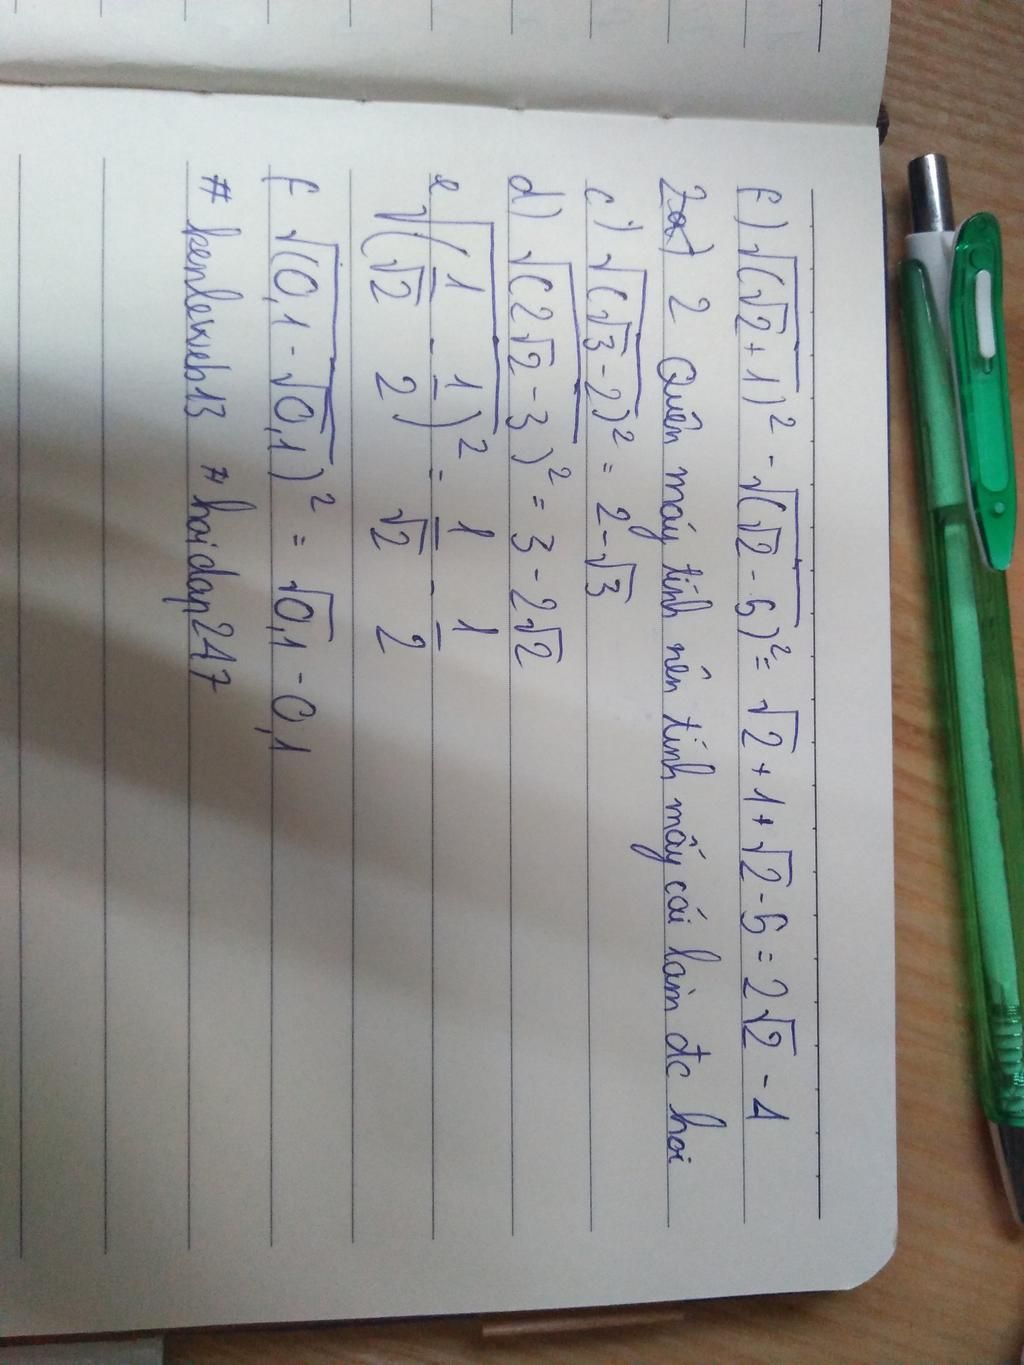 f) √(√2+1)² - √(√2-5)² = √2+1+√2-5 = 2√2-4
2a) 2 Quên máy tính nên tính mấy cái làm đc hoi
c) √(√3-2)² = 2-√3
d) √(2√2-3)² = 3-2√2
e √(1/√2 - 1/2)² = 1/√2 - 1/2
f √(0,1-√0,1)² = √0,1-0,1
# kenleweb13 # hoidap247